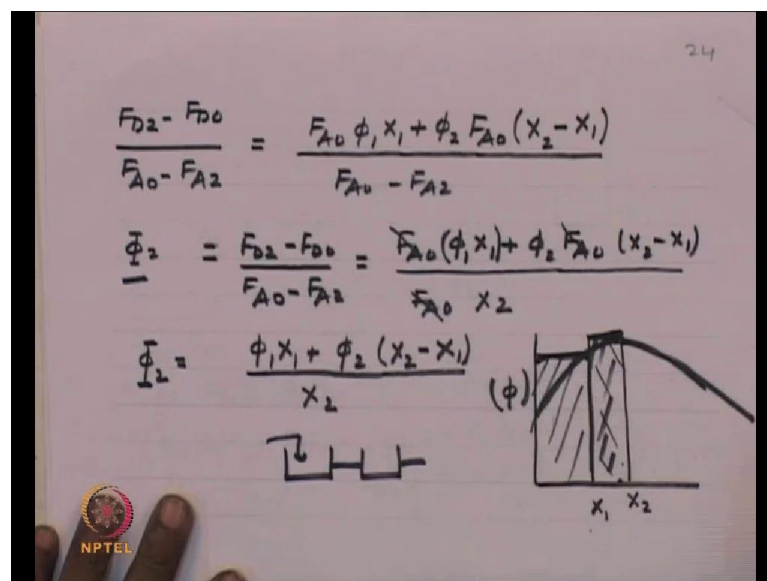 24
F_D2 - F_D0 / F_A0 - F_A2 = F_A0 ϕ_1 X_1 + ϕ_2 F_A0 (X_2 - X_1) / F_A0 - F_A2
Φ_2 = F_D2 - F_D0 / F_A0 - F_A2 = F_A0 (ϕ_1 X_1) + ϕ_2 F_A0 (X_2 - X_1) / F_A0 X_2
Φ_2 = ϕ_1 X_1 + ϕ_2 (X_2 - X_1) / X_2
(ϕ)
X_1 X_2
NPTEL